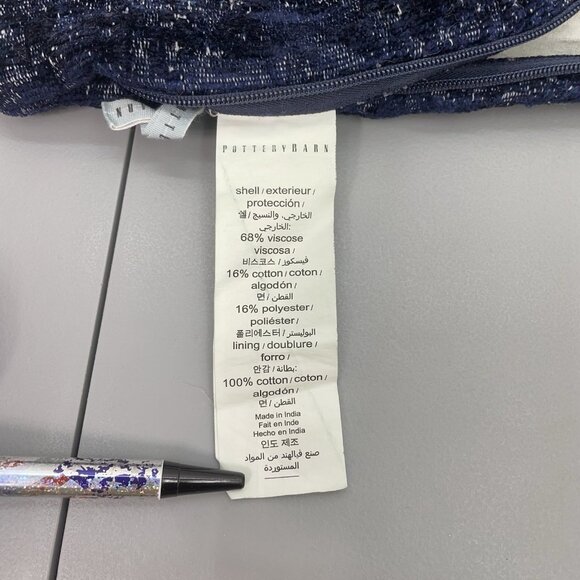 POTTERY BARN
shell / exterieur /
protección /
쉘 / الخارجي، والنسيج
الخارجي:
68% viscose
viscosa /
비스코스 / فيسكوز /
16% cotton / coton /
algodón /
면 / القطن /
16% polyester /
poliéster /
폴리에스터 / البوليستر /
lining / doublure /
forro /
안감 / بطانة:
100% cotton / coton /
algodón /
면 / القطن /
Made in India
Fait en Inde
Hecho en India
인도 제조
صنع فيالهند من المواد
المستوردة